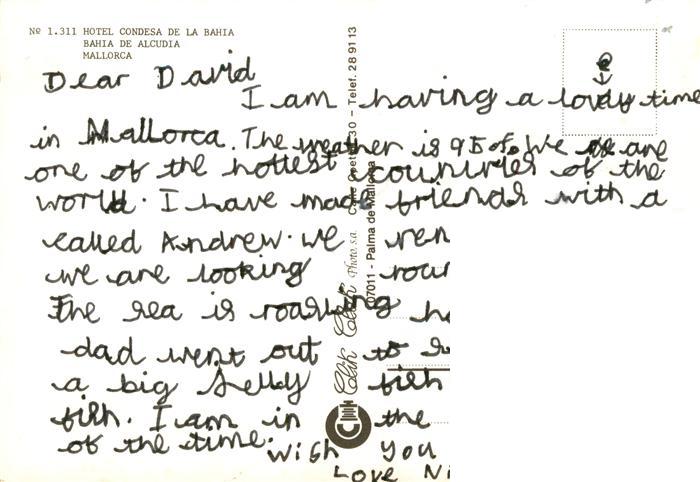 Nº 1.311 HOTEL CONDESA DE LA BAHIA
BAHIA DE ALCUDIA
MALLORCA
Dear David
I am having a lovely time
in Mallorca. The weather is 95°f. We are
one of the hottest countries of the
world. I have made friends with a
called Andrew. We ren
we are looking roun
The sea is roasting
dad went out to
a big Jelly fish
fish. I am in the
of the time. Wish you
Love Ni
Clik Photo, s.a. Telef. 28 91 13
07011 - Palma de Mallorca